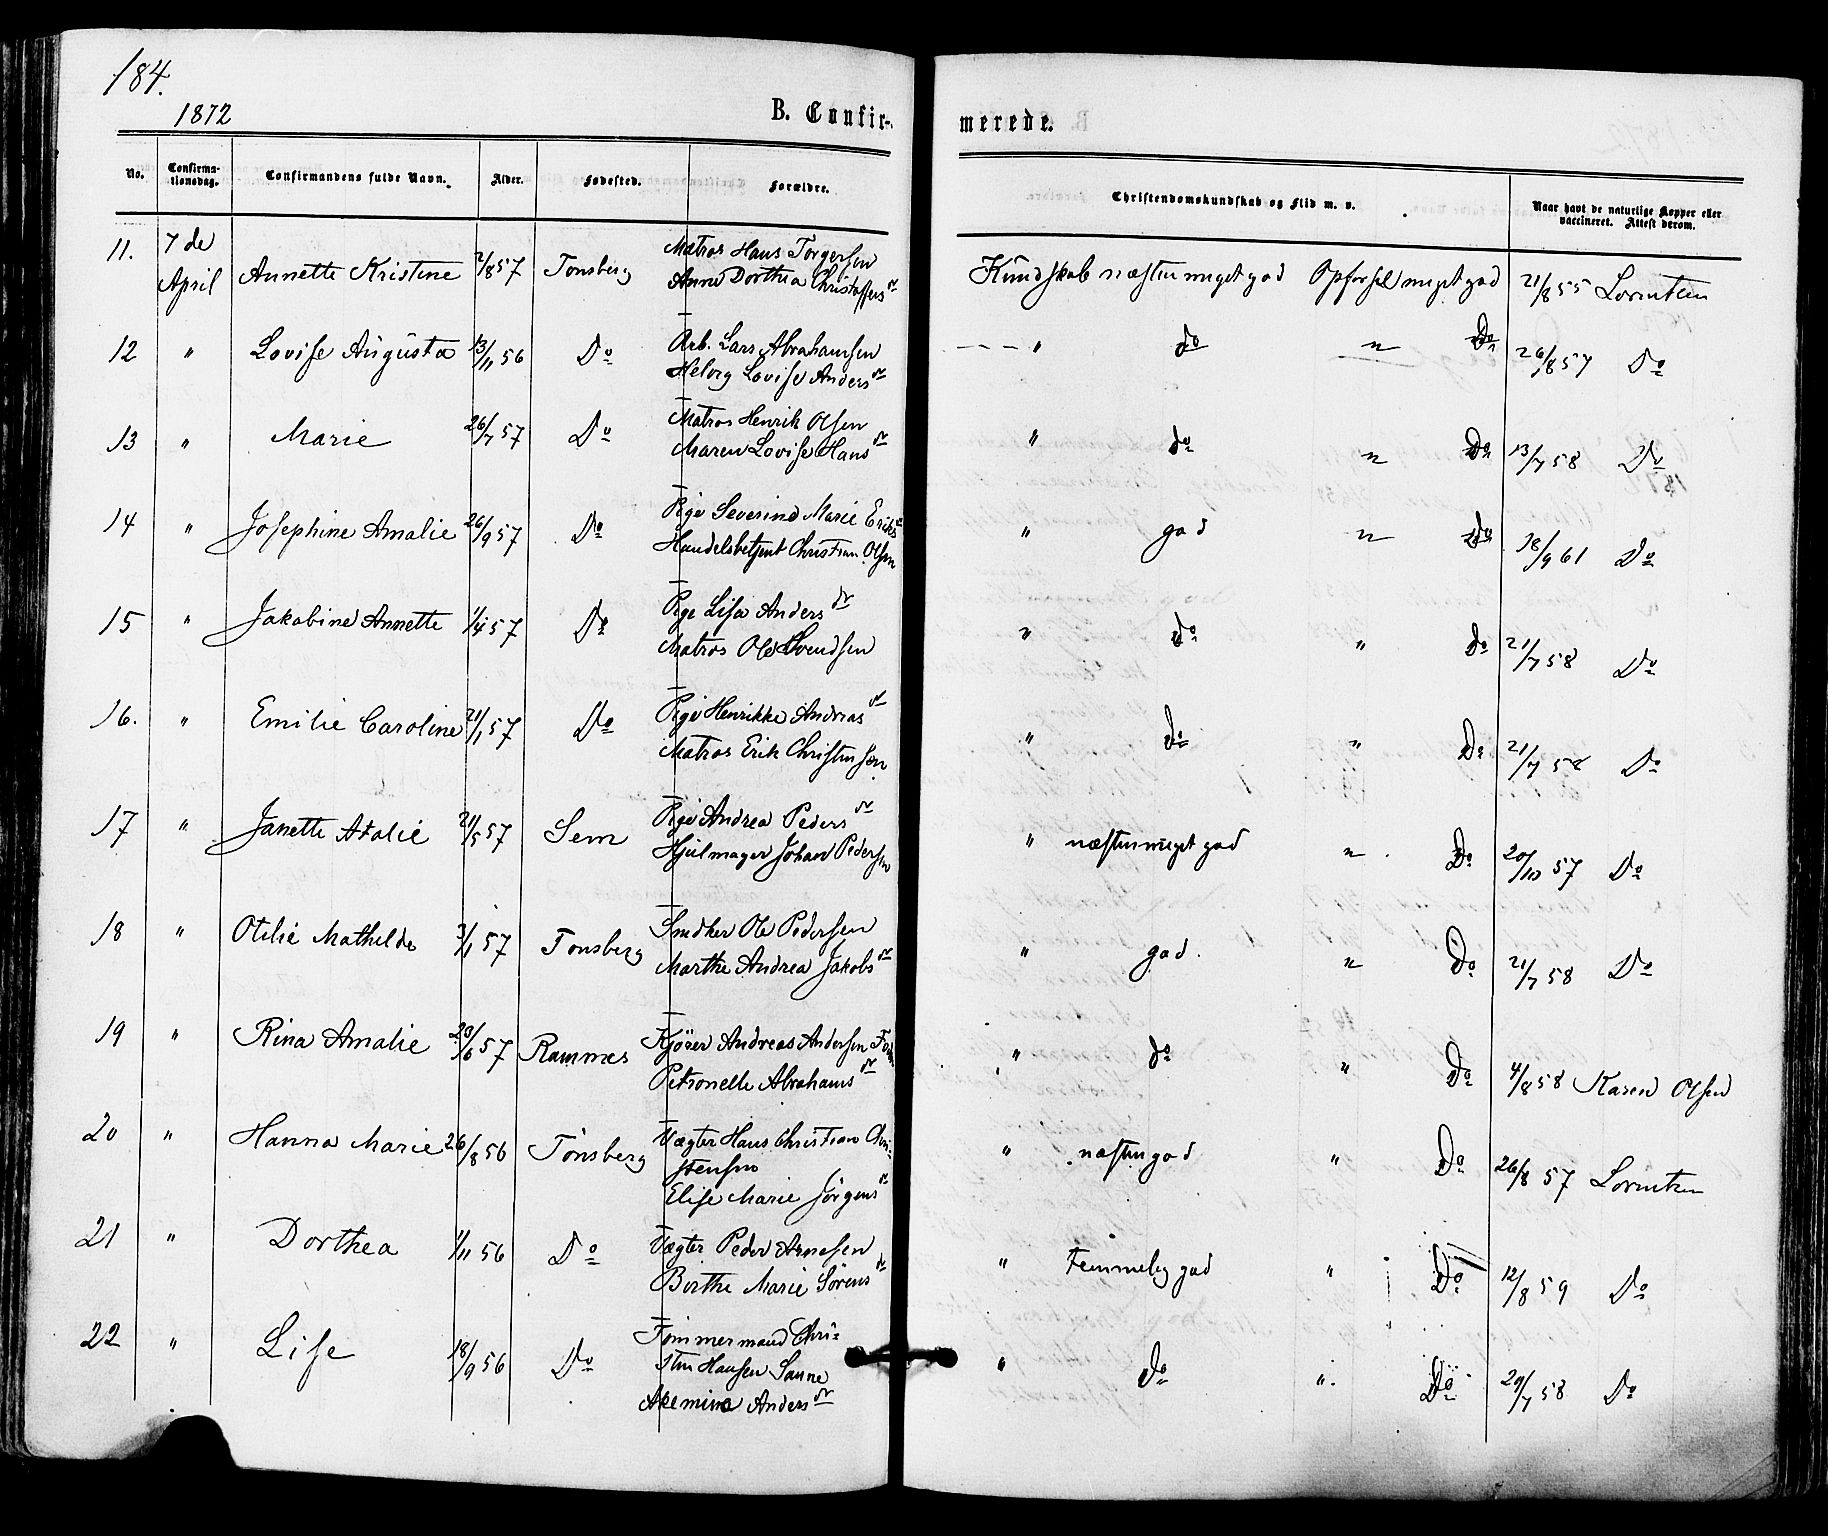 184.
1872
B. Confirmerede.
No. Confirmationsdag. Confirmandens fulde Navn. Alder. Fødested. Forældre. Christendomskundskab og Flid m. v. Naar havt de naturlige Kopper eller vaccineret. Attest derom.
11. 7 de April Annette Kristine 2/8 57 Tonsberg Matros Hans Torgersen
Anne Dorthea Christoffers dr Kundskab næsten meget god Opførsel meget god 21/8 55 Lorentsen
12 " Lovise Augusta 13/11 56 Do Arb. Lars Abrahamsen
Helvig Lovise Anders dr " do " Do 26/8 57 Do
13 " Marie 26/7 57 Do Matros Henrik Olsen
Maren Lovise Hans dr " do " Do 13/7 58 Do
14 " Josephine Amalie 26/9 57 Do Pige Severine Marie Eriks dr
Handelsbetjent Christian Olsen " god " Do 18/9 61 Do
15 " Jakobine Annette 1/4 57 Do Pige Lisa Anders dr
Matros Ole Svendsen " do " Do 21/7 58 Do
16. " Emilie Caroline 21/1 57 Do Pige Henrikke Andreas dr
Matros Erik Christensen " do " Do 21/7 58 Do
17 " Janette Atalie 21/5 57 Sem Pige Andrea Peders dr
Hjulmager Johan Pedersen " næsten meget god " Do 20/10 57 Do
18 " Otilie Mathilde 3/1 57 Tonsberg Snedker Ole Pedersen
Marthe Andrea Jakobs dr " god. " Do 21/7 58 Do
19 " Rina Amalie 20/6 57 Ramnæs Kjører Andreas Andersen
Petronelle Abrahams dr " do " Do 4/8 58 Karen Olsen
20 " Hanna Marie 26/8 56 Tønsberg Vægter Hans Christian Chri-
stensen
Elise Marie Jørgens dr " næsten god " Do 26/8 57 Lorentsen
21 " Dorthea 1/11 56 Do Vægter Peder Arnesen
Berthe Marie Sørens dr " Temmelig god " Do 12/8 59 Do
22 " Lise 18/9 56 Do Tømmermand Chri-
sten Hansen Sanne
Akemina Anders dr " Do " Do 20/7 58 Do